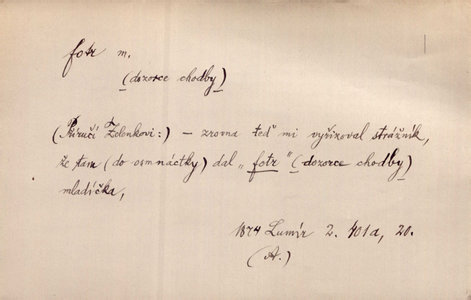 fotr m.
(dozorce chodby)
(Poručí Zelenkovi:) — zrovna teď mi vyřizoval strážník,
že tam (do osmnáctky) dal „fotr" (dozorce chodby)
mladíčka,
1874 Lumír 2. 401a, 20.
(A.)